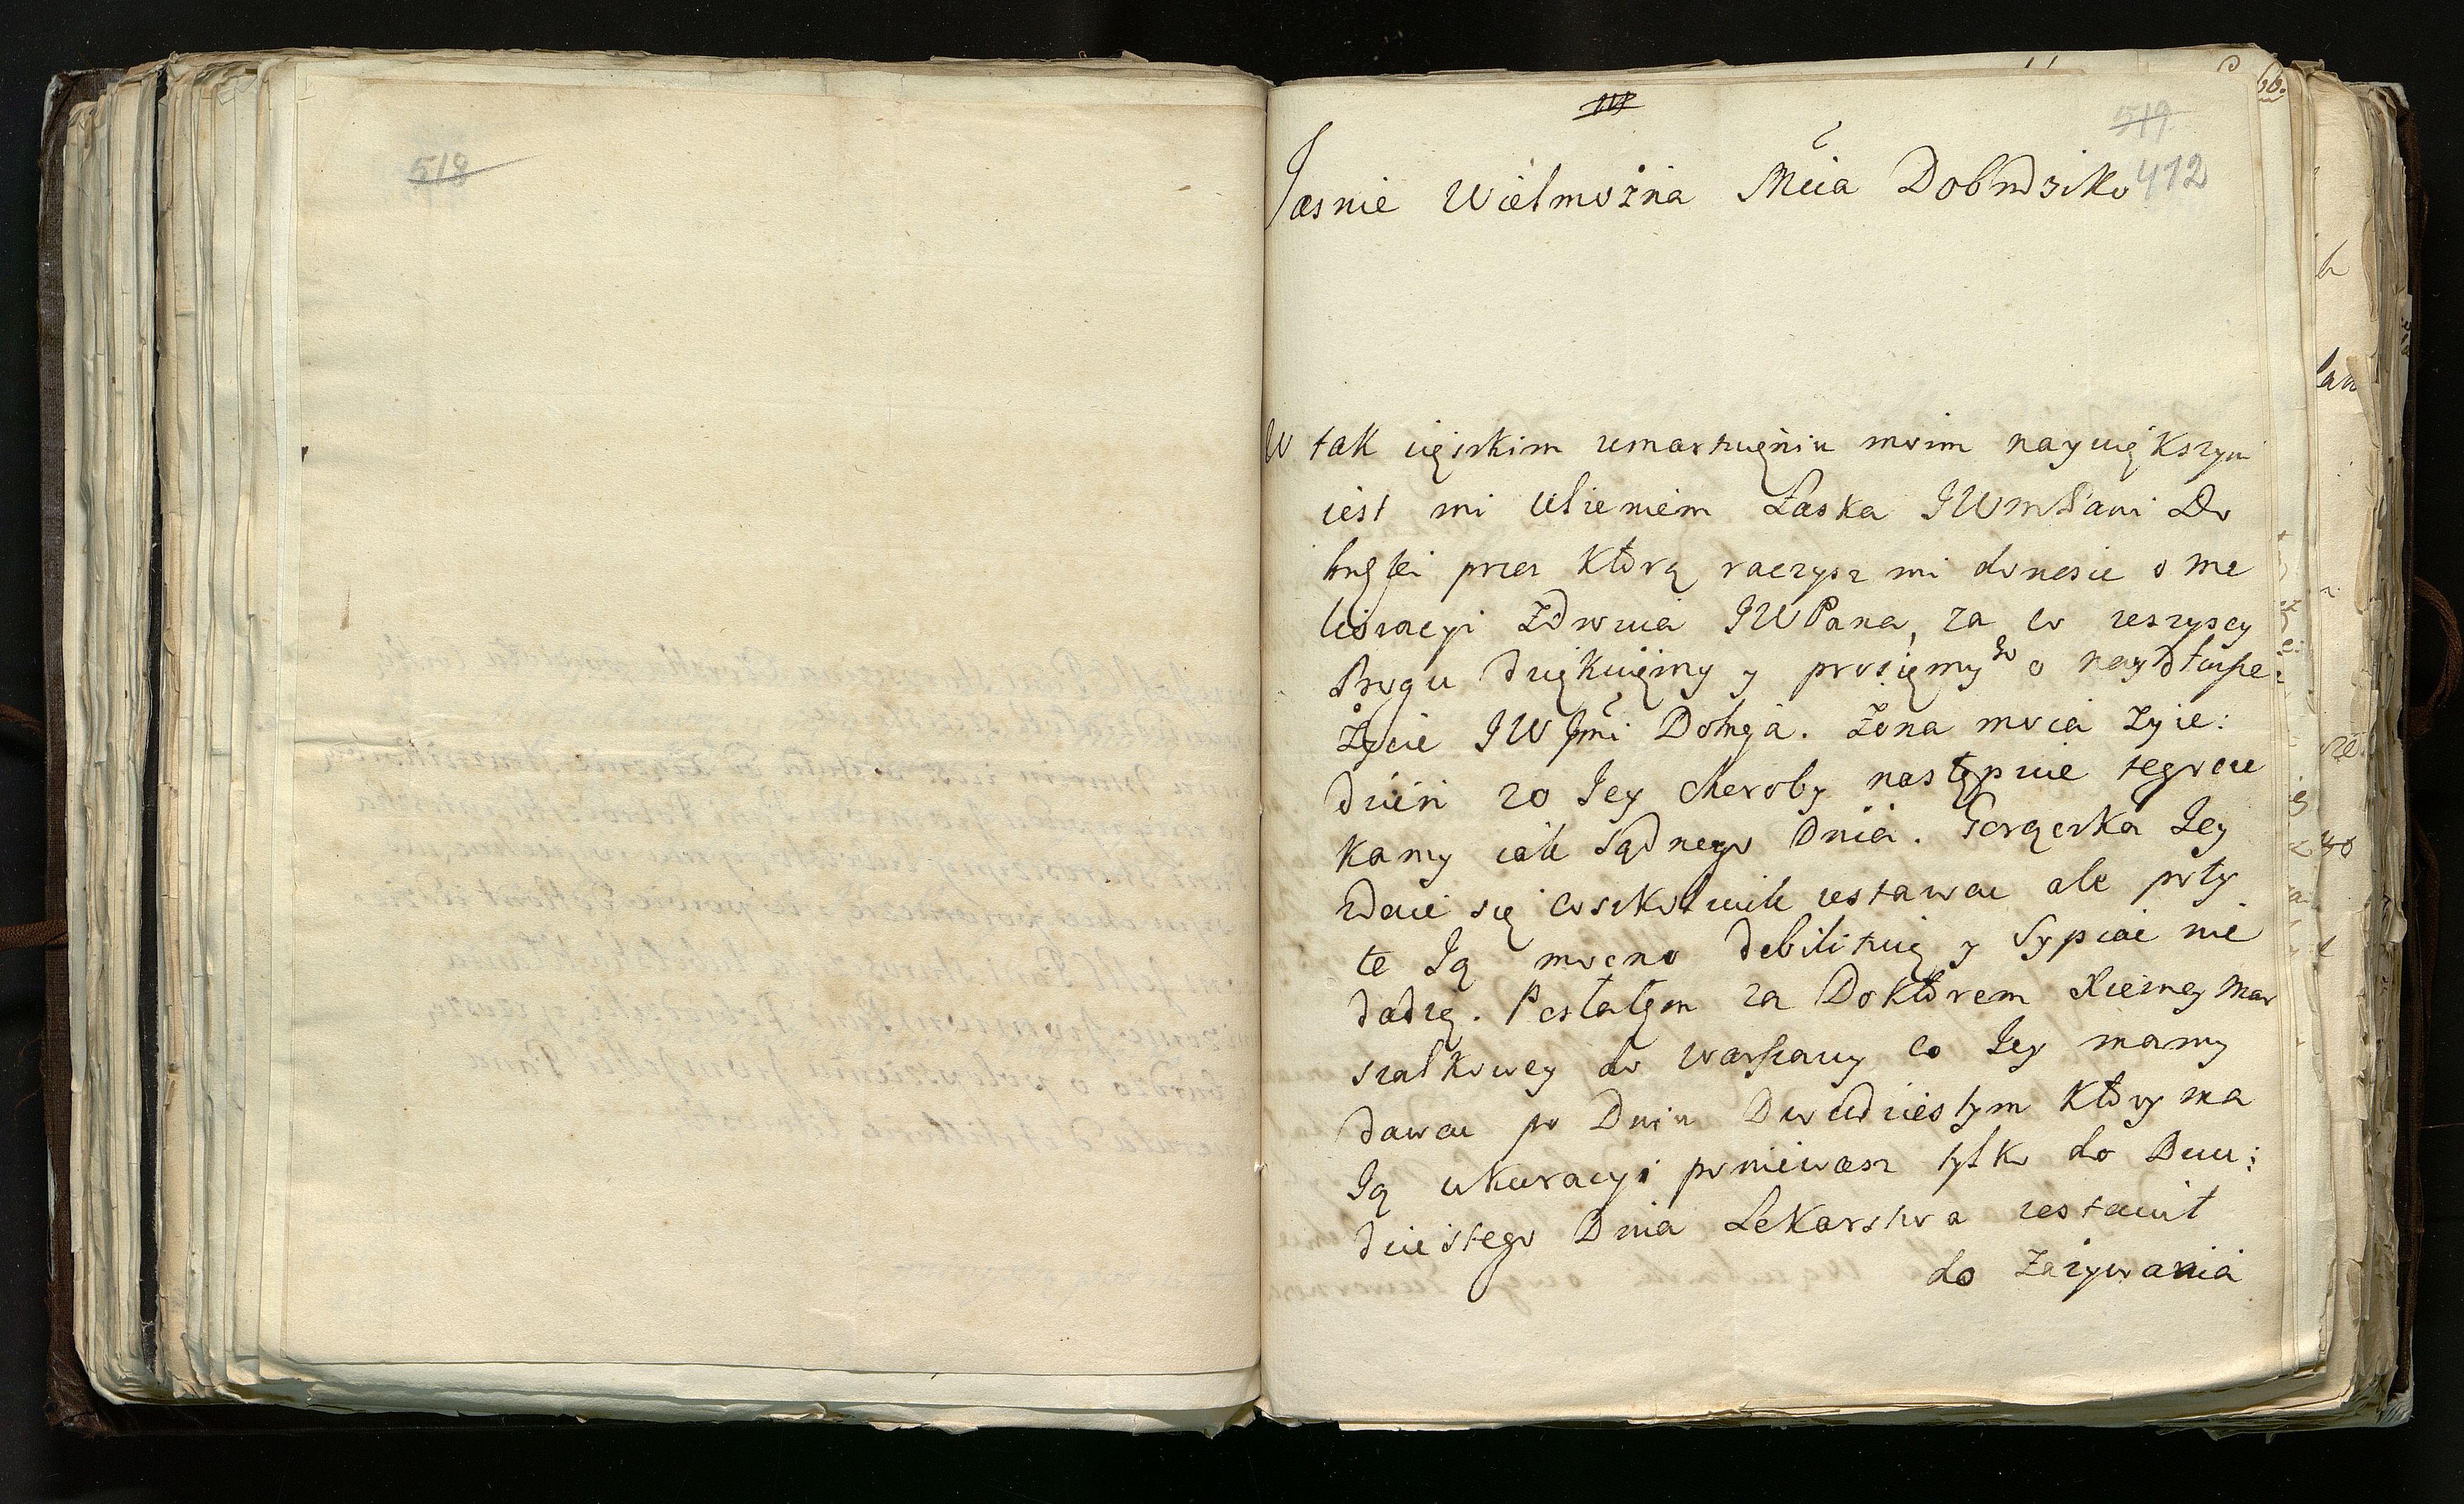 518
519
412
Jasnie Wielmożna Mćia Dobrdziko
W tak cięszkim umartwięniu moim naywiększym
iest mi ulżeniem Łaska JWmPani Do
brędzi przez ktorą raczysz mi doniesc o me
lioracyi Zdrowia JWPana, za co wszyscy
Bogu dziękuięmy y prosięmy go o naydłuższe
Życie JWJmći Dobrja. Żona moia żyie:
dzień 20 Jey choroby następuie tegoczę
kamy iak sądnego Dnia. Gorączka Jey
zdaie się coszkolwiek ustawać ale poty
te Ją mocno debilituią y Sypiać nie
dadzą. Posłałęm za Doktorem Xiężney Mar
szałkowey do Warszawy co Jey mamy
dawać po Dniu Dwudziestym ktory ma
Ją w kuracyi ponieważ tylko do Dwu:
dziestego Dnia Lekarstwa zostawił
do Zażywania